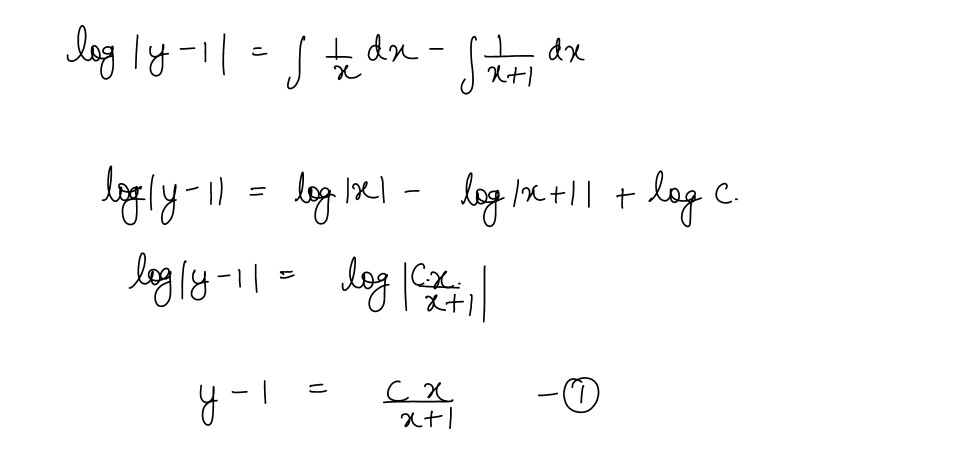 log |y-1| = ∫ 1/x dx - ∫ 1/(x+1) dx
log|y-1| = log|x| - log|x+1| + log c.
log|y-1| = log |C.x./(x+1)|
y-1 = Cx/(x+1) -①